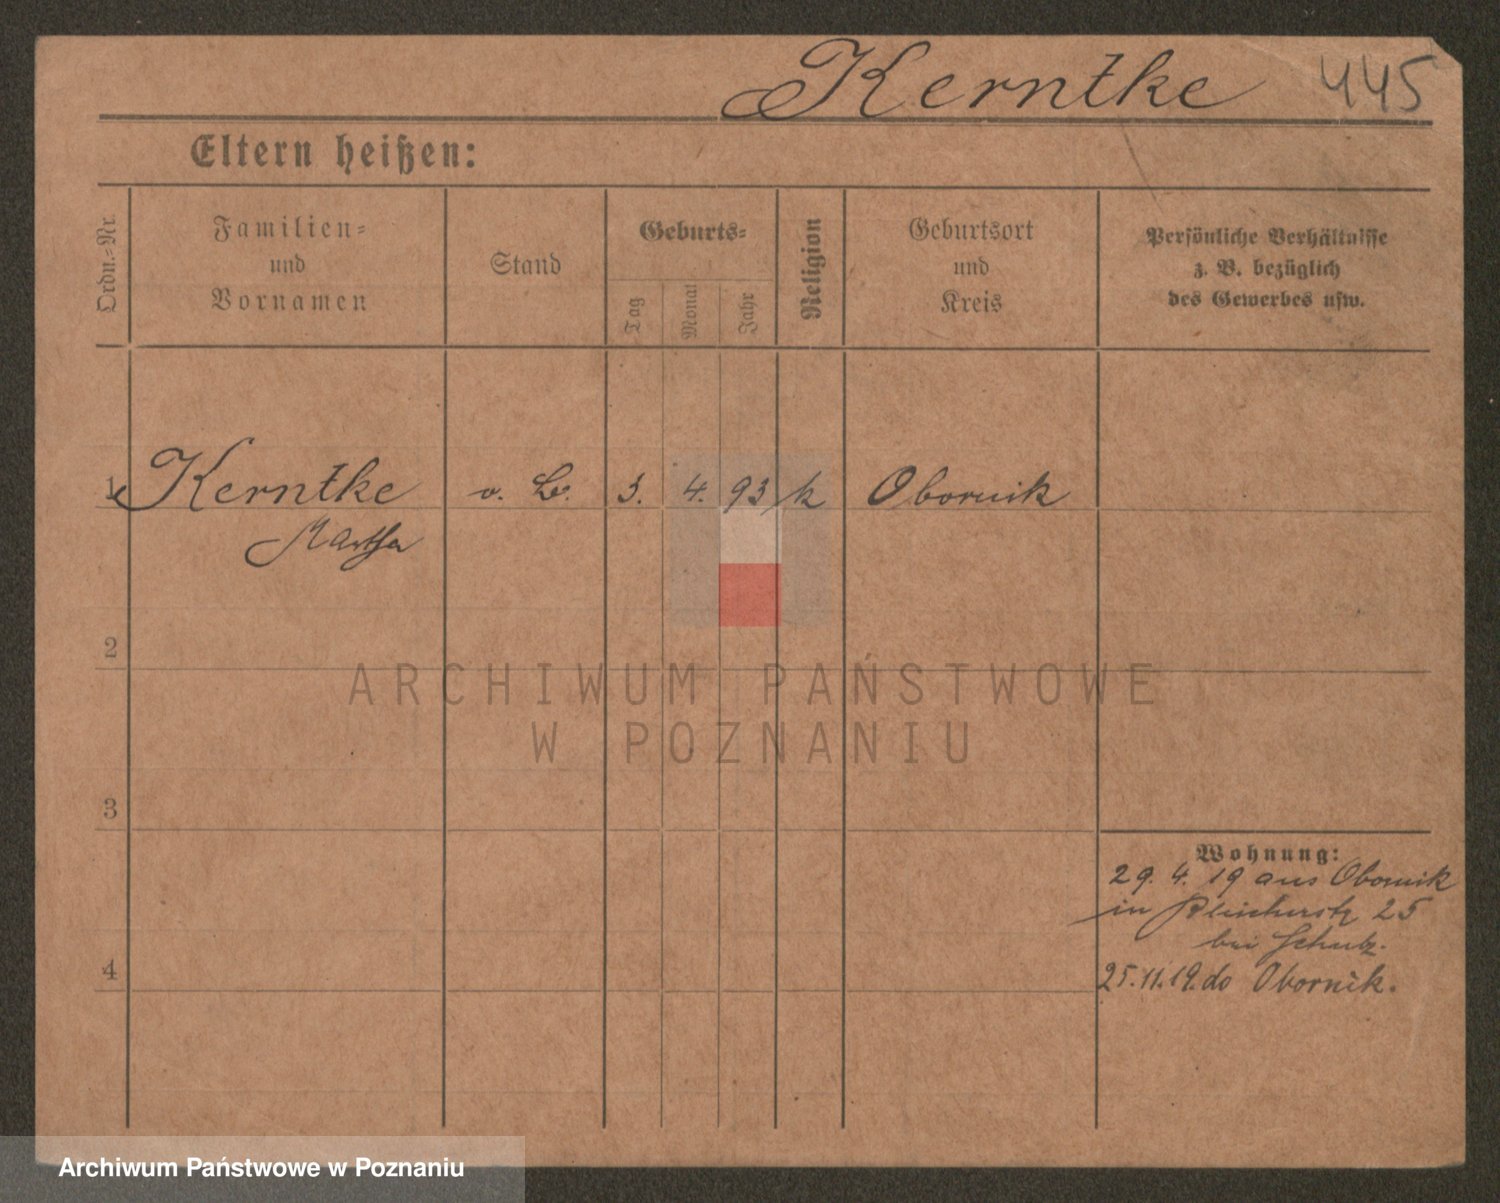 Kerntke 445
Eltern heißen:
Ordn.-Nr.
Familien-
und
Vornamen
Stand
Geburts-
Tag
Monat
Jahr
Religion
Geburtsort
und
Kreis
Persönliche Verhältnisse
z. B. bezüglich
des Gewerbes usw.
1 Kerntke o. B. 3. 4. 93 k Obornik
Martha
2
ARCHIWUM PAŃSTWOWE
W POZNANIU
3
Wohnung:
29. 4. 19 aus Obornik
in Bleicherstr 25
bei Schulz.
4
25.11.19. do Obornik.
Archiwum Państwowe w Poznaniu